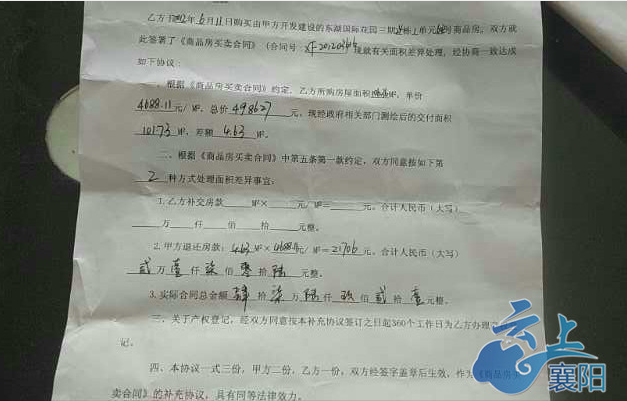 乙方于2012年6月11日购买由甲方开发建设的东湖国际花园三期 栋1单元 号商品房，双方就
此签署了《商品房买卖合同》（合同号： 20120364 现就有关面积差异处理，经协商一致达成
如下协议：
一、根据《商品房买卖合同》约定，乙方所购房屋面积 M²，单价
4688.11元/M²，总价498627元。现经政府相关部门测绘后的交付面积
101.73M²，差额4.63M²。
二、根据《商品房买卖合同》中第五条第一款约定，双方同意按如下第
2种方式处理面积差异事宜：
1.乙方补交房款 M²× 元/M²= 元，合计人民币（大写）
万 仟 佰 拾 元整。
2.甲方退还房款：4.63M²×4688.11元/M²=21706元，合计人民币（大写）
贰万壹仟柒佰零拾陆元整。
3.实际合同总金额肆拾柒万陆仟玖佰贰拾壹元整。
三、关于产权登记，经双方同意按本补充协议签订之日起360个工作日为乙方办理
记。
四、本协议一式三份，甲方二份，乙方一份，双方经签字盖章后生效，作为《商品房
卖合同》的补充协议，具有同等法律效力。
云上
襄阳